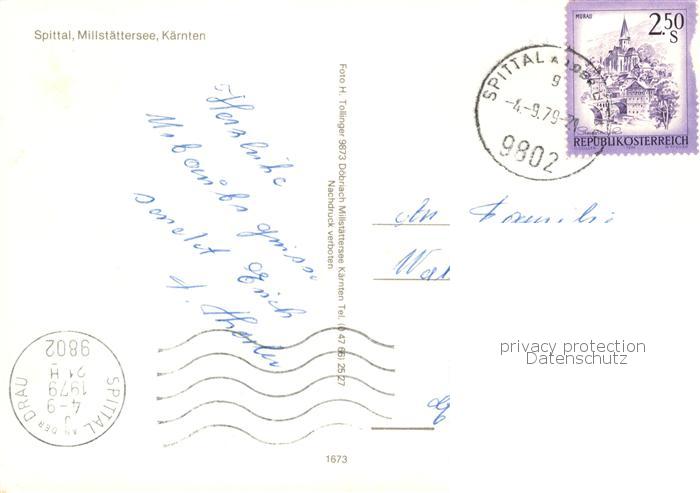 Spittal, Millstättersee, Kärnten
MURAU
2.50
S
REPUBLIK ÖSTERREICH
SPITTAL A
9
-4.-9.79-21
9802
Herzliche
Urlaubsgrüsse
sendet Erich
Foto H. Tollinger 9873 Döbriach Millstättersee Kärnten Tel. (0 47 66) 25 27
Nachdruck verboten
An Familie
privacy protection
Datenschutz
SPITTAL AN DER DRAU
4-9
1979
21 H
9802
1673